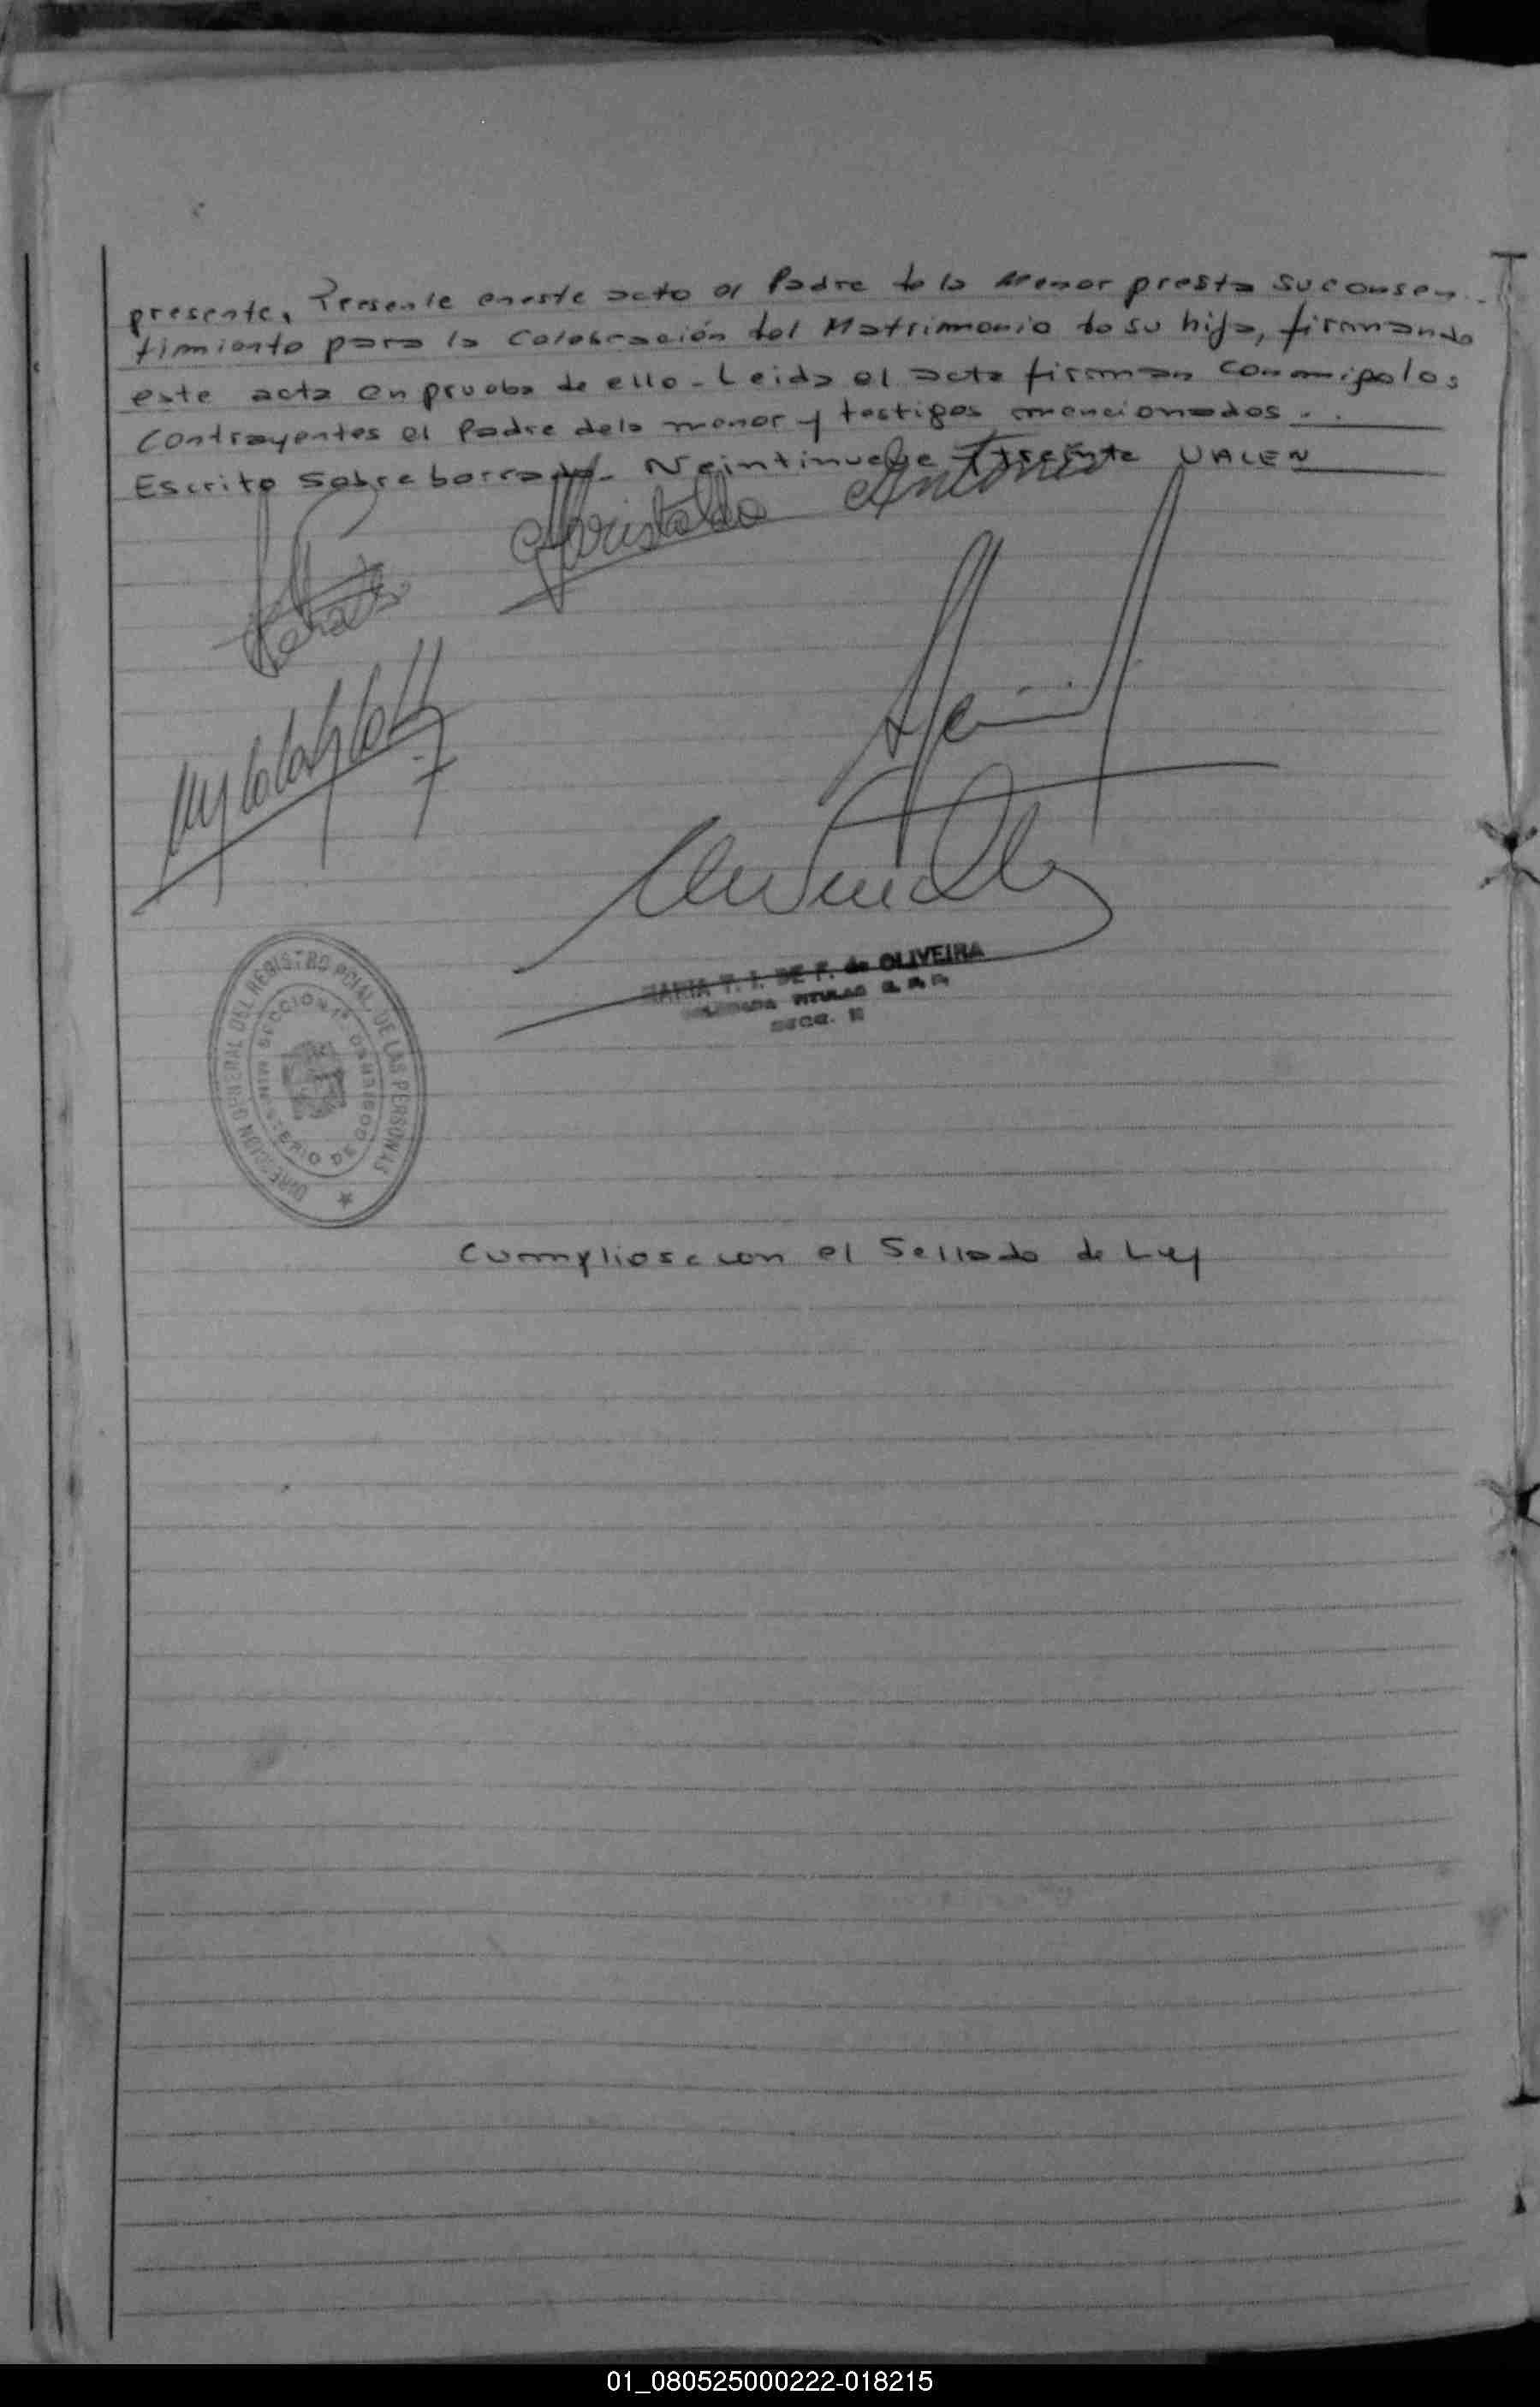 presente, Presente eneste acto el Padre de la Menor presta su consen-
timiento para la Celebración del Matrimonio de su hija, firmando
este acta en prueba de ello - Leida el acta firman conmigo los
Contrayentes el Padre dela menor y testigos mencionados . .
Escrito Sobre borrado - Veintinueve Presente VALEN
Aristaldo Antonio
MARIA T. I. DE F. de OLIVEIRA
DELEGADA TITULAR R. P. P.
SECC. 
DIRECCION GENERAL DEL REGISTRO PCIAL. DE LAS PERSONAS
MINISTERIO DE GOBIERNO SECCION 1ª
Cumpliose con el Sellado de Ley
01_080525000222-018215